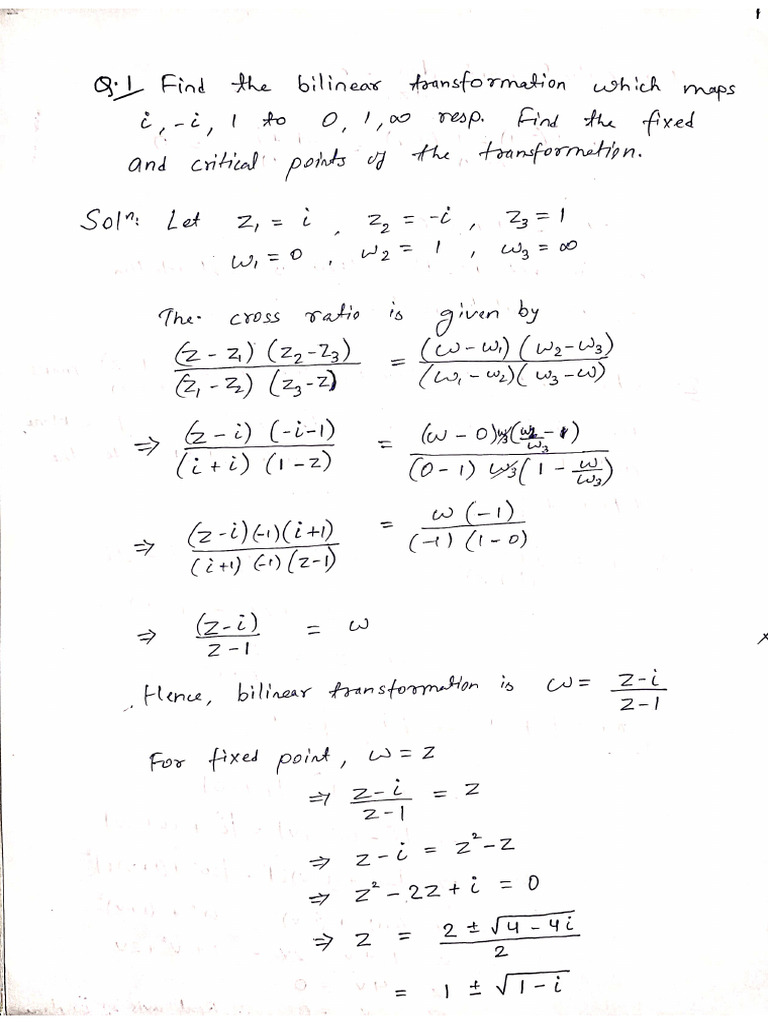 Q.1 Find the bilinear transformation which maps
i, -i, 1 to 0, 1, ∞ resp. Find the fixed
and critical points of the transformation.
Solⁿ: Let z₁ = i , z₂ = -i , z₃ = 1
w₁ = 0 , w₂ = 1 , w₃ = ∞
The cross ratio is given by
(z - z₁) (z₂ - z₃) / (z₁ - z₂) (z₃ - z) = (w - w₁) (w₂ - w₃) / (w₁ - w₂) (w₃ - w)
⇒ (z - i) (-i - 1) / (i + i) (1 - z) = (w - 0) w₃ (w₂/w₃ - 1) / (0 - 1) w₃ (1 - w/w₃)
⇒ (z - i) (-1) (i + 1) / (i + 1) (-1) (z - 1) = w (-1) / (-1) (1 - 0)
⇒ (z - i) / z - 1 = w
Hence, bilinear transformation is w = z - i / z - 1
For fixed point, w = z
⇒ z - i / z - 1 = z
⇒ z - i = z² - z
⇒ z² - 2z + i = 0
⇒ z = 2 ± √4 - 4i / 2
= 1 ± √1 - i